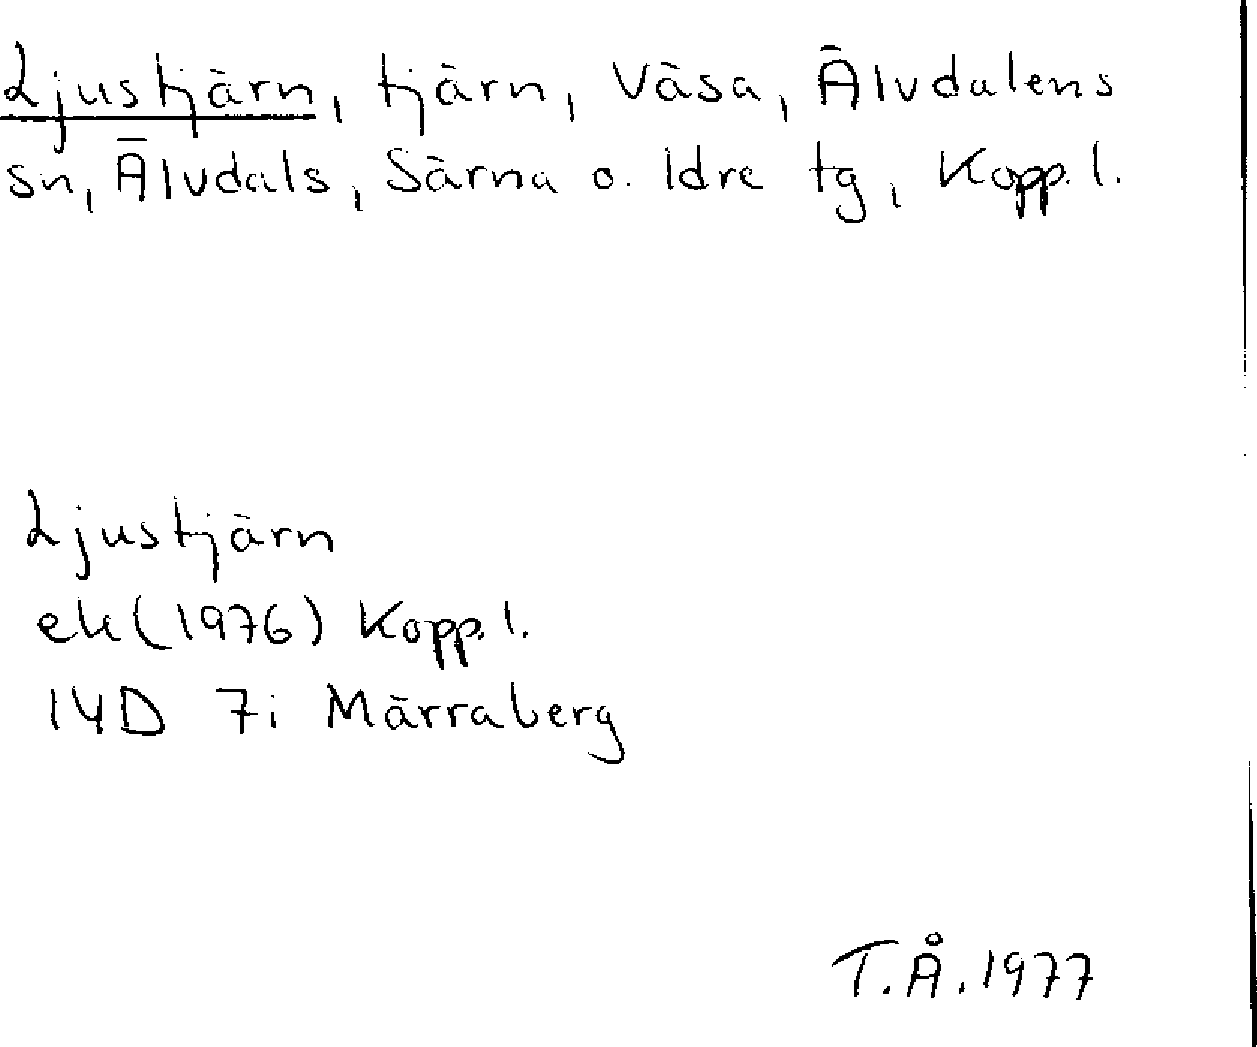 Ljustjärn, tjärn, Väsa, Älvdalens
sn, Älvdals, Särna o. Idre tg, Kopp. l.
Ljustjärn
ek (1976) Kopp. l.
14D 7i Märraberg
T.Å. 1977